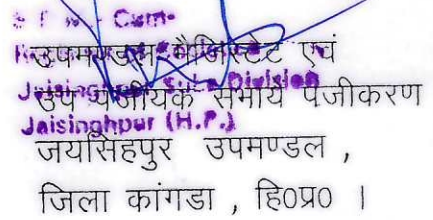 Cum-
उपमण्डल मैजिस्ट्रेट एवं
Jaisinghpur Sub Division
उप पंजीयक समीय पंजीकरण
Jaisinghpur (H.P.)
जयसिंहपुर उपमण्डल ,
जिला कांगडा , हि०प्र० ।